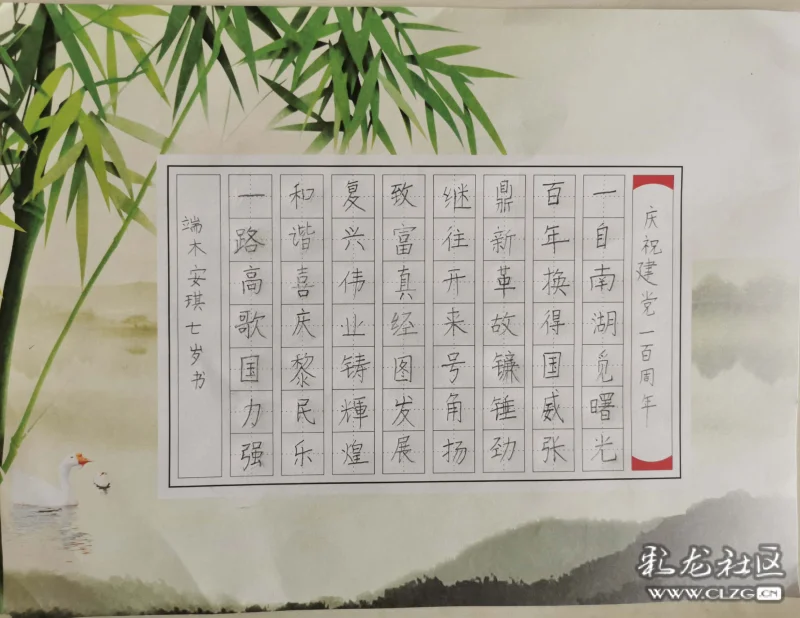 庆祝建党一百周年
一自南湖觅曙光
百年换得国威张
鼎新革故镰锤劲
继往开来号角扬
致富真经图发展
复兴伟业铸輝煌
和谐喜庆黎民乐
一路高歌国力强
端木安琪七岁书
彩龙社区
WWW.CLZG.CN